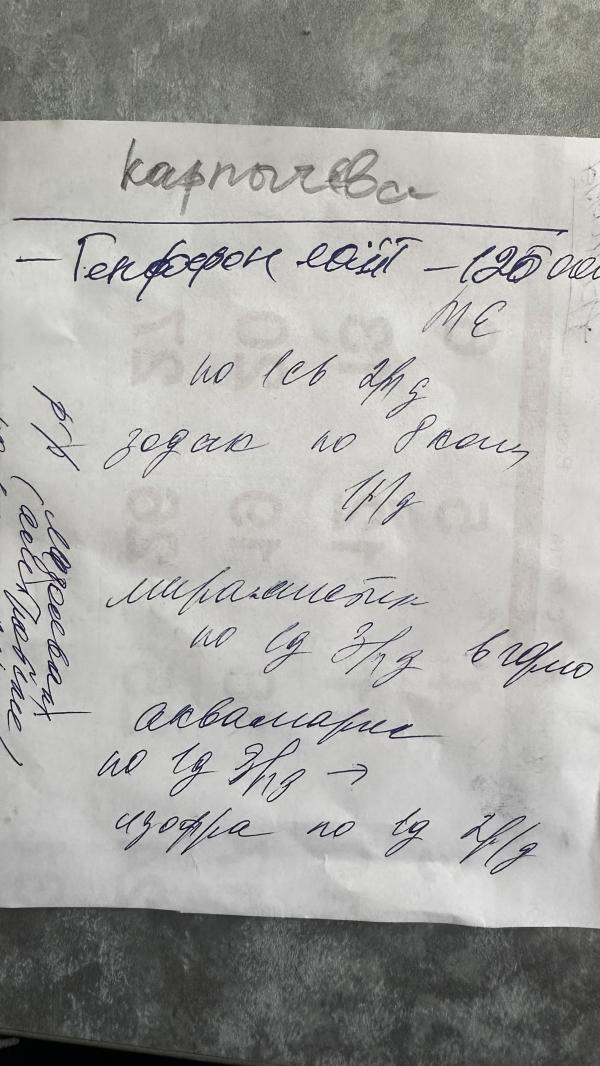 Карпычева
— Генфорон лайт – 125 000
МЕ
по 1св 2р/д
зодак по 8 кап
1р/д
мирамистин
по 1д 3р/д в горло
аквамарис
по 1д 3р/д →
изофра по 1д 2р/д